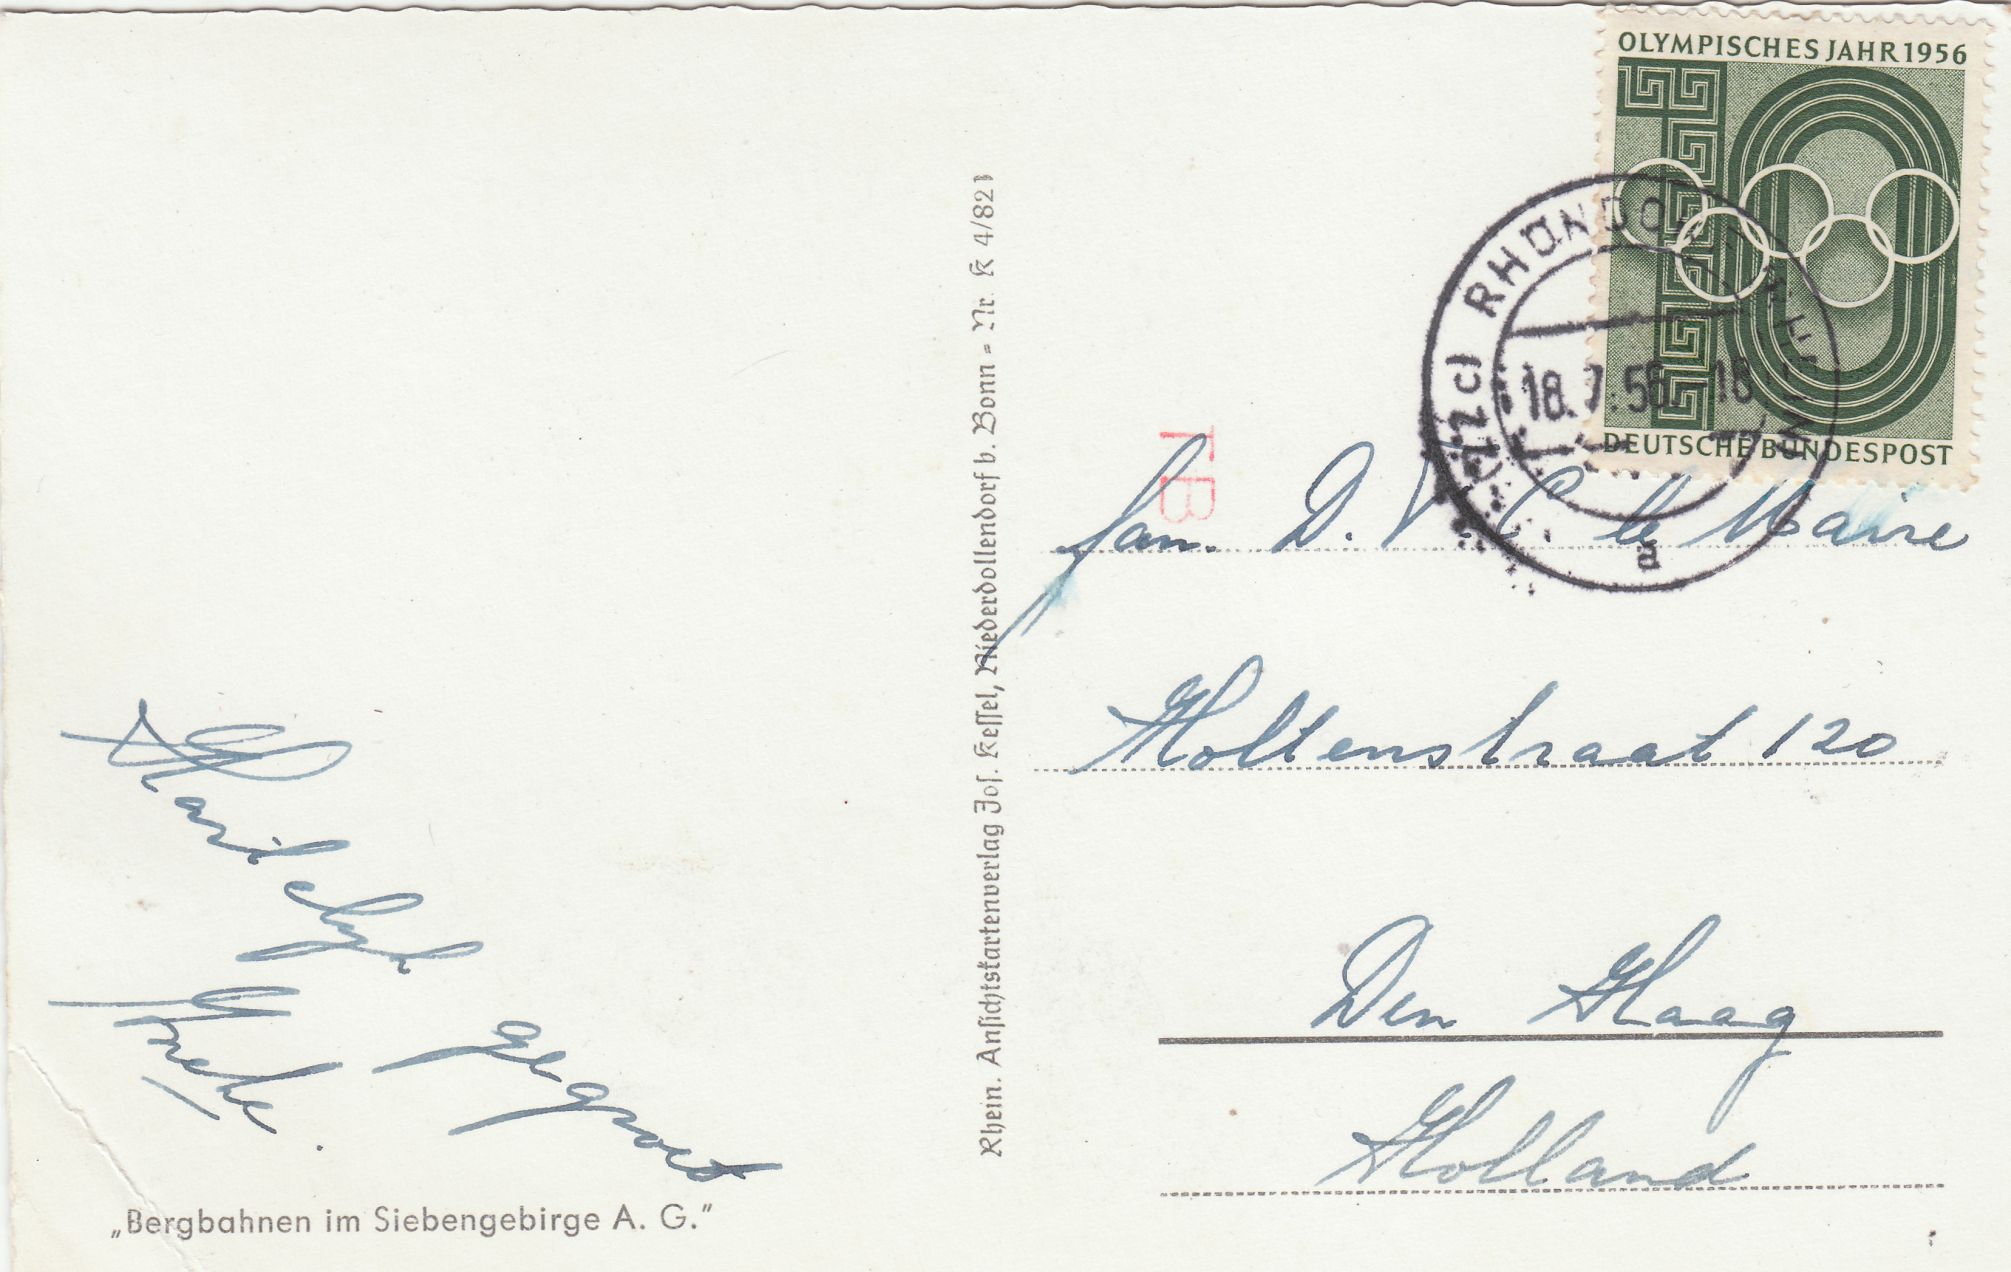 OLYMPISCHES JAHR 1956
DEUTSCHE BUNDESPOST
(22c) RHÖNDORF RHEIN
18.7.56.-18
a
TB
Fam. D. V. C. le Maire
Holtenstraat 120
Den Haag
Holland
Hartelijk gegroet
Rhein. Ansichtskartenverlag Jos. Kessel, Niederdollendorf b. Bonn - Nr. K 4/821
„Bergbahnen im Siebengebirge A. G.”